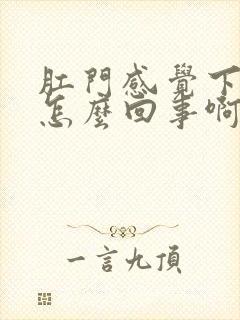 肛門感覺下
怎麼回事啊
一言九頂